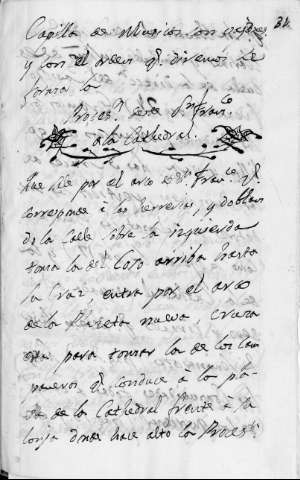 34
Capilla de Musicos con
y con el orden q. diremos se
forma la
Proces.n desde S.n Fran.co
a la Cathedral.
sale por el arco de S.n Fran.co q.
corresponde à las herrerias, y doblan
do la calle sobre la izquierda
toma la del Coso arriba hasta
la Cruz, entra por el arco
de la Plazeta nueva, cruza
esta para tomar la de los Cam
paneros q. conduce à la pla
za de la Cathedral frente à la
lonja donde hace alto la Proces.n